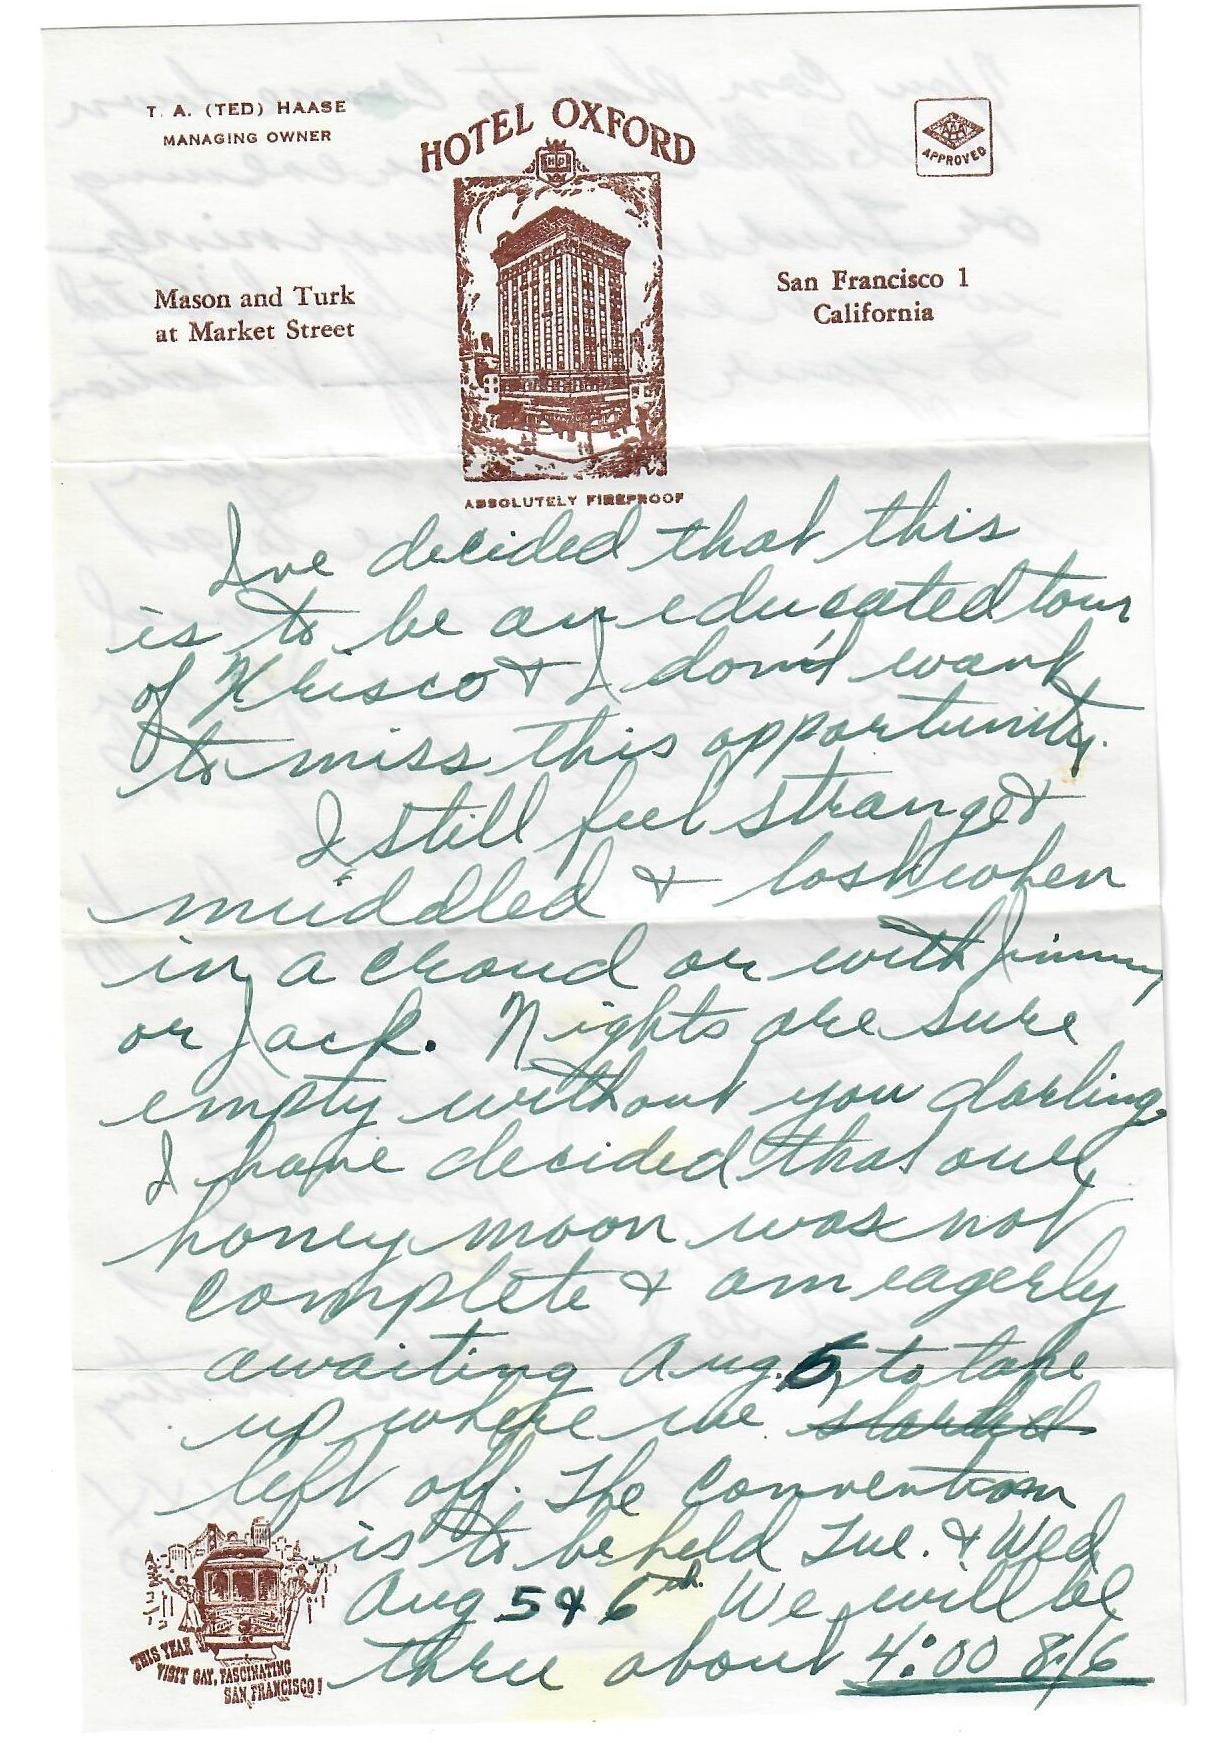 T. A. (TED) HAASE
MANAGING OWNER
HOTEL OXFORD
HO
AAA
APPROVED
Mason and Turk
at Market Street
San Francisco 1
California
ABSOLUTELY FIREPROOF
Ive decided that this
is to be an educated tour
of Frisco & I don't want
to miss this opportunity.
I still feel strange &
muddled & lost when
in a croud or with Jimmy
or Jack. Nights are sure
empty without you darling.
I have decided that our
honey moon was not
complete & am eagerly
awaiting Aug. 5, to take
up where we started
left off. The convention
is to be held Tue. & Wed
Aug 5 & 6th. We will be
threu about 4:00 8/6
THIS YEAR
VISIT GAY, FASCINATING
SAN FRANCISCO!